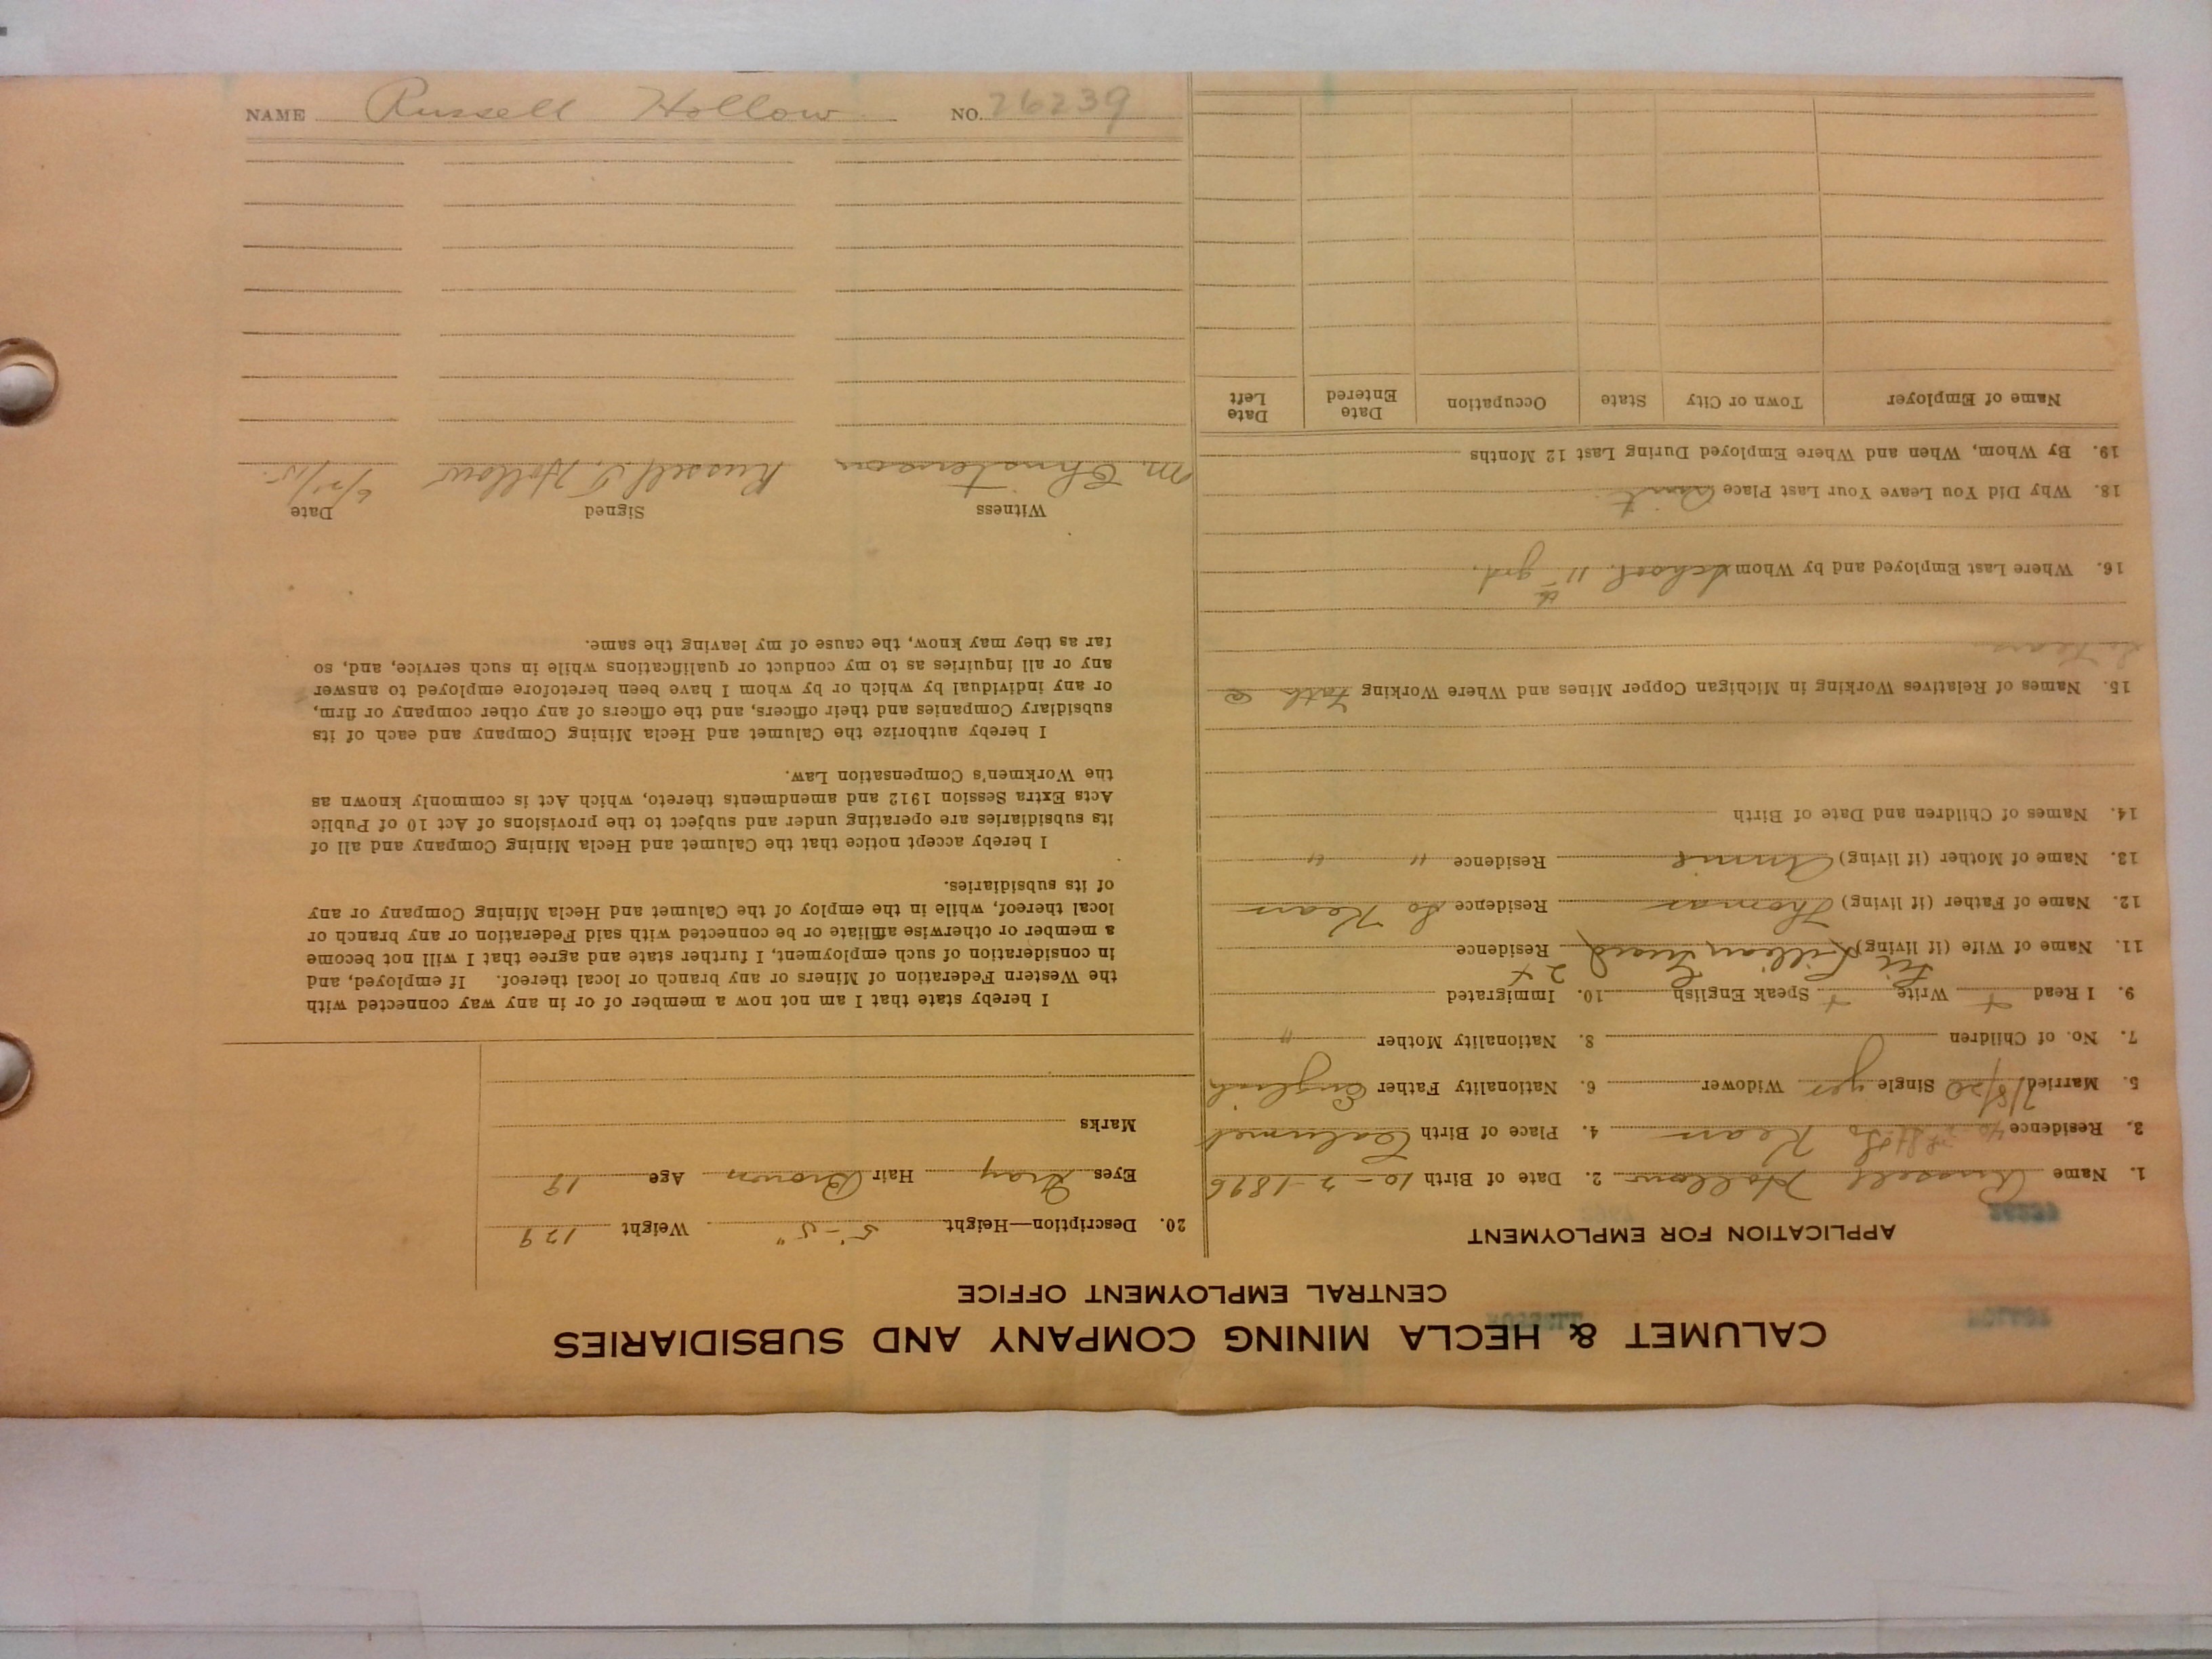 CALUMET & HECLA MINING COMPANY AND SUBSIDIARIES
CENTRAL EMPLOYMENT OFFICE
APPLICATION FOR EMPLOYMENT
1. Name Russell Hollow 2. Date of Birth 10-2-1896
3. Residence So Kears 4. Place of Birth Calumet
5. Married 7/8/20 Single yes Widower 6. Nationality Father English
7. No. of Children 8. Nationality Mother "
9. I Read + Write + Speak English + 10. Immigrated
11. Name of Wife (if living) Lillian Residence
12. Name of Father (if living) Thomas Residence So Kears
13. Name of Mother (if living) Annie Residence " "
14. Names of Children and Date of Birth
15. Names of Relatives Working in Michigan Copper Mines and Where Working Fath @
So Kears
16. Where Last Employed and by Whom School. 11th grd.
18. Why Did You Leave Your Last Place
19. By Whom, When and Where Employed During Last 12 Months
Name of Employer Town or City State Occupation Date Entered Date Left
20. Description—Height 5'-5" Weight 129
Eyes Gray Hair Brown Age 18
Marks
I hereby state that I am not now a member of or in any way connected with
the Western Federation of Miners or any branch or local thereof. If employed, and
in consideration of such employment, I further state and agree that I will not become
a member or otherwise affiliate or be connected with said Federation or any branch or
local thereof, while in the employ of the Calumet and Hecla Mining Company or any
of its subsidiaries.
I hereby accept notice that the Calumet and Hecla Mining Company and all of
its subsidiaries are operating under and subject to the provisions of Act 10 of Public
Acts Extra Session 1912 and amendments thereto, which Act is commonly known as
the Workmen's Compensation Law.
I hereby authorize the Calumet and Hecla Mining Company and each of its
subsidiary Companies and their officers, and the officers of any other company or firm,
or any individual by which or by whom I have been heretofore employed to answer
any or all inquiries as to my conduct or qualifications while in such service, and, so
far as they may know, the cause of my leaving the same.
Witness Signed Date
M. Christenson Russell T. Hollow
NAME Russell Hollow NO. 26239